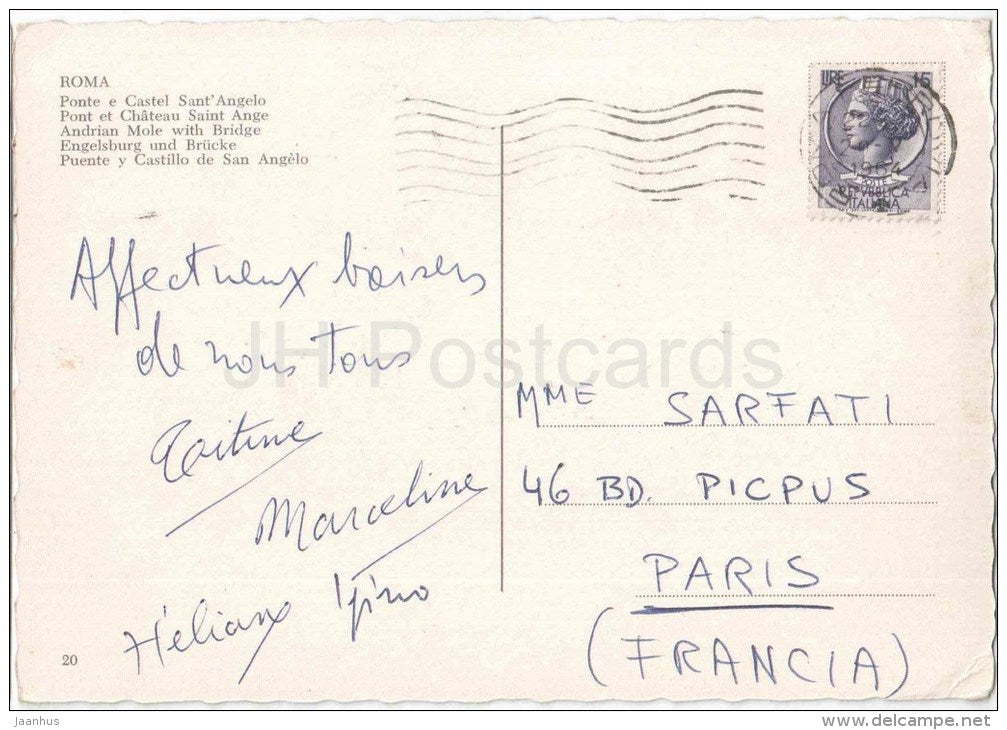 ROMA
Ponte e Castel Sant'Angelo
Pont et Château Saint Ange
Andrian Mole with Bridge
Engelsburg und Brücke
Puente y Castillo de San Angêlo
LIRE 15
1964
POSTE
REPVBBLICA
ITALIANA
Affectueux baisers
de nous tous
Marceline
MME SARFATI
46 BD. PICPUS
PARIS
(FRANCIA)
20
JH Postcards
jaanhus
www.delcampe.net